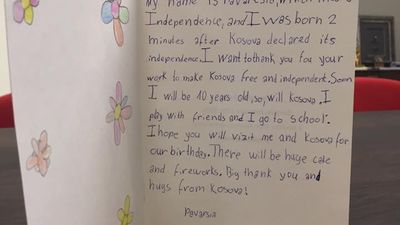 My name is Pavarësia, which means
Independence, and I was born 2
minutes after Kosova declared its
independence. I want to thank you fou your
work to make Kosova free and independent. Soon
I will be 10 years old, so, will Kosova. I
play with friends and I go to school.
I hope you will visit me and Kosova for
our birthday. There will be huge cake
and fireworks. By, thank you and
hugs from Kosova!
Pavarsia